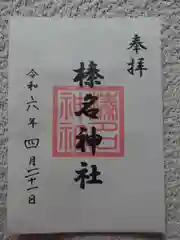 奉拝
榛名神社
榛名神社
令和六年四月二十一日